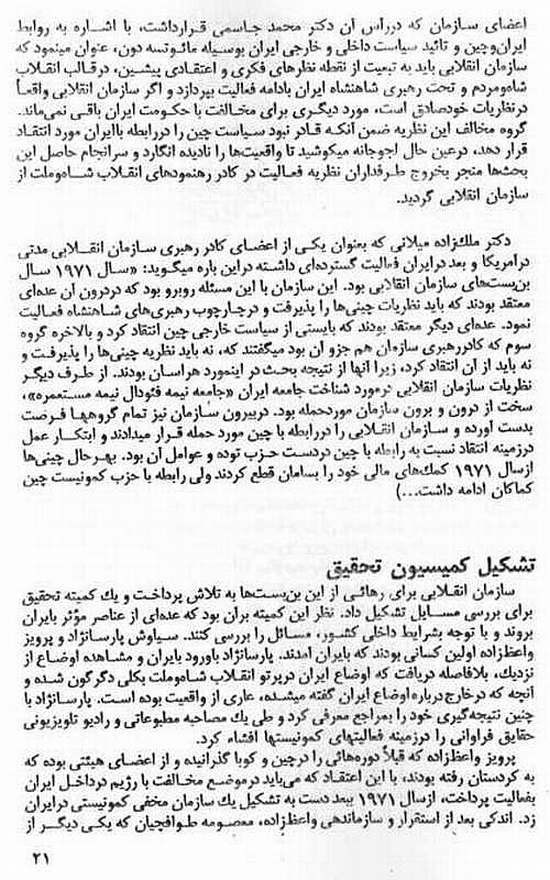 اعضای سازمان که دررأس آن دکتر محمد جاسمی قرارداشت، با اشاره به روابط
ایران‌وچین و تائید سیاست داخلی و خارجی ایران بوسیله مائوتسه دون، عنوان مینمود که
سازمان انقلابی باید به تبعیت از نقطه نظرهای فکری و اعتقادی پیشین، درقالب انقلاب
شاه‌ومردم و تحت رهبری شاهنشاه ایران بادامه فعالیت بپردازد و اگر سازمان انقلابی واقعاً
درنظریات خودصادق است، مورد دیگری برای مخالفت با حکومت ایران باقی نمی‌ماند.
گروه مخالف این نظریه ضمن آنکه قادر نبود سیاست چین را دررابطه باایران مورد انتقاد
قرار دهد، درعین حال لجوجانه میکوشید تا واقعیت‌ها را نادیده انگارد و سرانجام حاصل این
بحث‌ها منجر بخروج طرفداران نظریه فعالیت در کادر رهنمودهای انقلاب شاه‌وملت از
سازمان انقلابی گردید.
دکتر ملک‌زاده میلانی که بعنوان یکی از اعضای کادر رهبری سازمان انقلابی مدتی
درامریکا و بعد درایران فعالیت گسترده‌ای داشته دراین باره میگوید: «سال ۱۹۷۱ سال
بن‌بست‌های سازمان انقلابی بود. این سازمان با این مسئله روبرو بود که دردرون آن عده‌ای
معتقد بودند که باید نظریات چینی‌ها را پذیرفت و درچارچوب رهبری‌های شاهنشاه فعالیت
نمود. عده‌ای دیگر معتقد بودند که بایستی از سیاست خارجی چین انتقاد کرد و بالاخره گروه
سوم که کادررهبری سازمان هم جزو آن بود میگفتند که، نه باید نظریه چینی‌ها را پذیرفت و
نه باید از آن انتقاد کرد، زیرا آنها از نتیجه بحث در اینمورد هراسان بودند. از طرف دیگر
نظریات سازمان انقلابی درمورد شناخت جامعه ایران «جامعه نیمه فئودال نیمه مستعمره»،
سخت از درون و برون سازمان موردحمله بود. دربیرون سازمان نیز تمام گروهها فرصت
بدست آورده و سازمان انقلابی را دررابطه با چین مورد حمله قرار میدادند و ابتکار عمل
درزمینه انتقاد نسبت به رابطه با چین دردست حزب توده و عوامل آن بود. بهرحال چینی‌ها
ازسال ۱۹۷۱ کمک‌های مالی خود را بسامان قطع کردند ولی رابطه با حزب کمونیست چین
کماکان ادامه داشت...)
تشکیل کمیسیون تحقیق
سازمان انقلابی برای رهائی از این بن‌بست‌ها به تلاش پرداخت و یک کمیته تحقیق
برای بررسی مسایل تشکیل داد. نظر این کمیته بران بود که عده‌ای از عناصر مؤثر بایران
بروند و با توجه بشرایط داخلی کشور، مسائل را بررسی کنند. سیاوش پارسانژاد و پرویز
واعظ‌زاده اولین کسانی بودند که بایران آمدند. پارسانژاد باورود بایران و مشاهده اوضاع از
نزدیک، بلافاصله دریافت که اوضاع ایران درپرتو انقلاب شاه‌وملت بکلی دگرگون شده و
آنچه که درخارج درباره اوضاع ایران گفته میشده، عاری از واقعیت بوده است. پارسانژاد با
چنین نتیجه‌گیری خود را بمراجع معرفی کرد و طی یك مصاحبه مطبوعاتی و رادیو تلویزیونی
حقایق فراوانی را درزمینه فعالیتهای کمونیستها افشاء کرد.
پرویز واعظ‌زاده که قبلاً دوره‌هائی را درچین و کوبا گذرانیده و از اعضای هیئتی بوده که
به کردستان رفته بودند، با این اعتقاد که می‌باید درموضع مخالفت با رژیم درداخل ایران
بفعالیت پرداخت، ازسال ۱۹۷۱ ببعد دست به تشکیل یك سازمان مخفی کمونیستی درایران
زد. اندکی بعد از استقرار و سازماندهی واعظ‌زاده، معصومه طوافچیان که یکی دیگر از
۲۱